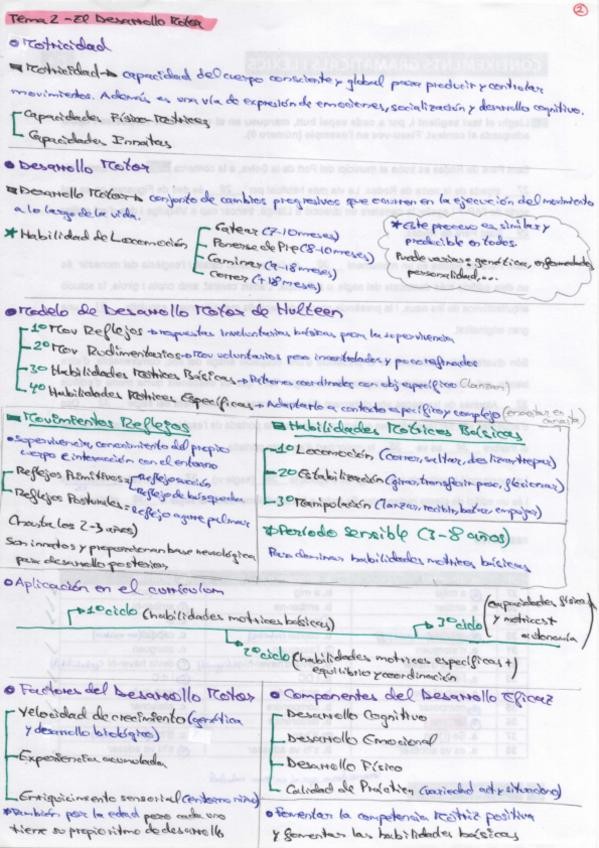 2
Tema 2 - El Desarrollo Motor
Motricidad
Motricidad → capacidad del cuerpo consciente y global para producir y controlar
movimientos. Además es una vía de expresión de emociones, socialización y desarrollo cognitivo.
Capacidades Físico-Motrices
Capacidades Innatas
Desarrollo Motor
Desarrollo Motor → conjunto de cambios progresivos que ocurren en la ejecución del movimiento
a lo largo de la vida.
* Habilidad de Locomoción
Gatear (7-10 meses)
Ponerse de Pie (8-10 meses)
Caminar (9-18 meses)
Correr (+18 meses)
* Este proceso es similar y
producible en todos.
Puede variar: genética, enfermedades
personalidad,...
Modelo de Desarrollo Motor de Hulteen
1º Mov Reflejos → respuestas involuntarias básicas para la supervivencia
2º Mov Rudimentarios → Mov voluntarios pero incontrolados y poco refinados
3º Habilidades Motrices Básicas → Patrones coordinados con obj específico (lanzar)
4º Habilidades Motrices Específicas → Adaptarlo a contexto específico y complejo (encestar en
canasta)
Movimientos Reflejos
supervivencia, conocimiento del propio
cuerpo e interacción con el entorno
Reflejos Primitivos = Reflejo succión
Reflejo de búsqueda
Reflejos Posturales
Reflejo agarre palmar
(hasta los 2-3 años)
Son innatos y proporcionan base neurológica
para desarrollo posterior.
Habilidades Motrices Básicas
1º Locomoción (correr, saltar, deslizar, trepar)
2º Estabilización (girar, transferir peso, flexionar)
3º Manipulación (lanzar, recibir, botar, empujar)
* Período sensible (3-8 años)
Para dominar habilidades motrices básicas
Aplicación en el currículum
1º ciclo (habilidades motrices básicas)
2º ciclo (habilidades motrices específicas +)
equilibrio y coordinación
3º ciclo
(capacidades físicas
y motrices +
autonomía)
Factores del Desarrollo Motor
Velocidad de crecimiento (genética
y desarrollo biológico)
Experiencia acumulada
Enriquecimiento sensorial (entorno niño)
* También por la edad pero cada uno
tiene su propio ritmo de desarrollo
Componentes del Desarrollo Eficaz
Desarrollo Cognitivo
Desarrollo Emocional
Desarrollo Físico
Calidad de Práctica (variedad act y situaciones)
Fomentar la competencia Motriz positiva
y fomentar las habilidades básicas